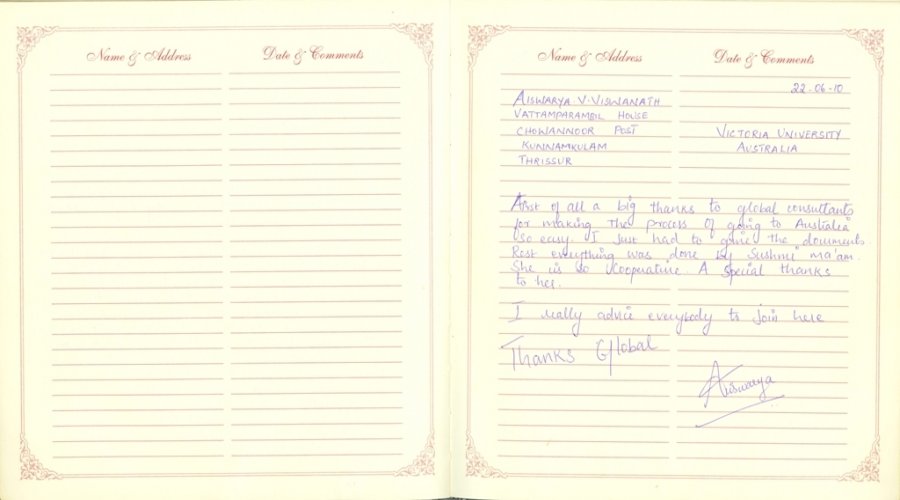 Name & Address
Date & Comments
Name & Address
Date & Comments
22-06-10
AISWARYA V.VISWANATH
VATTAMPARAMBIL HOUSE
CHOWANNOOR POST
KUNNAMKULAM
THRISSUR
VICTORIA UNIVERSITY
AUSTRALIA
First of all a big thanks to global consultants
for making the process of going to Australia
so easy. I just had to give the documents.
Rest everything was done by Sushmi ma'am.
She is so cooperative. A special thanks
to her.
I really advice everybody to join here
Thanks Global
Aiswarya